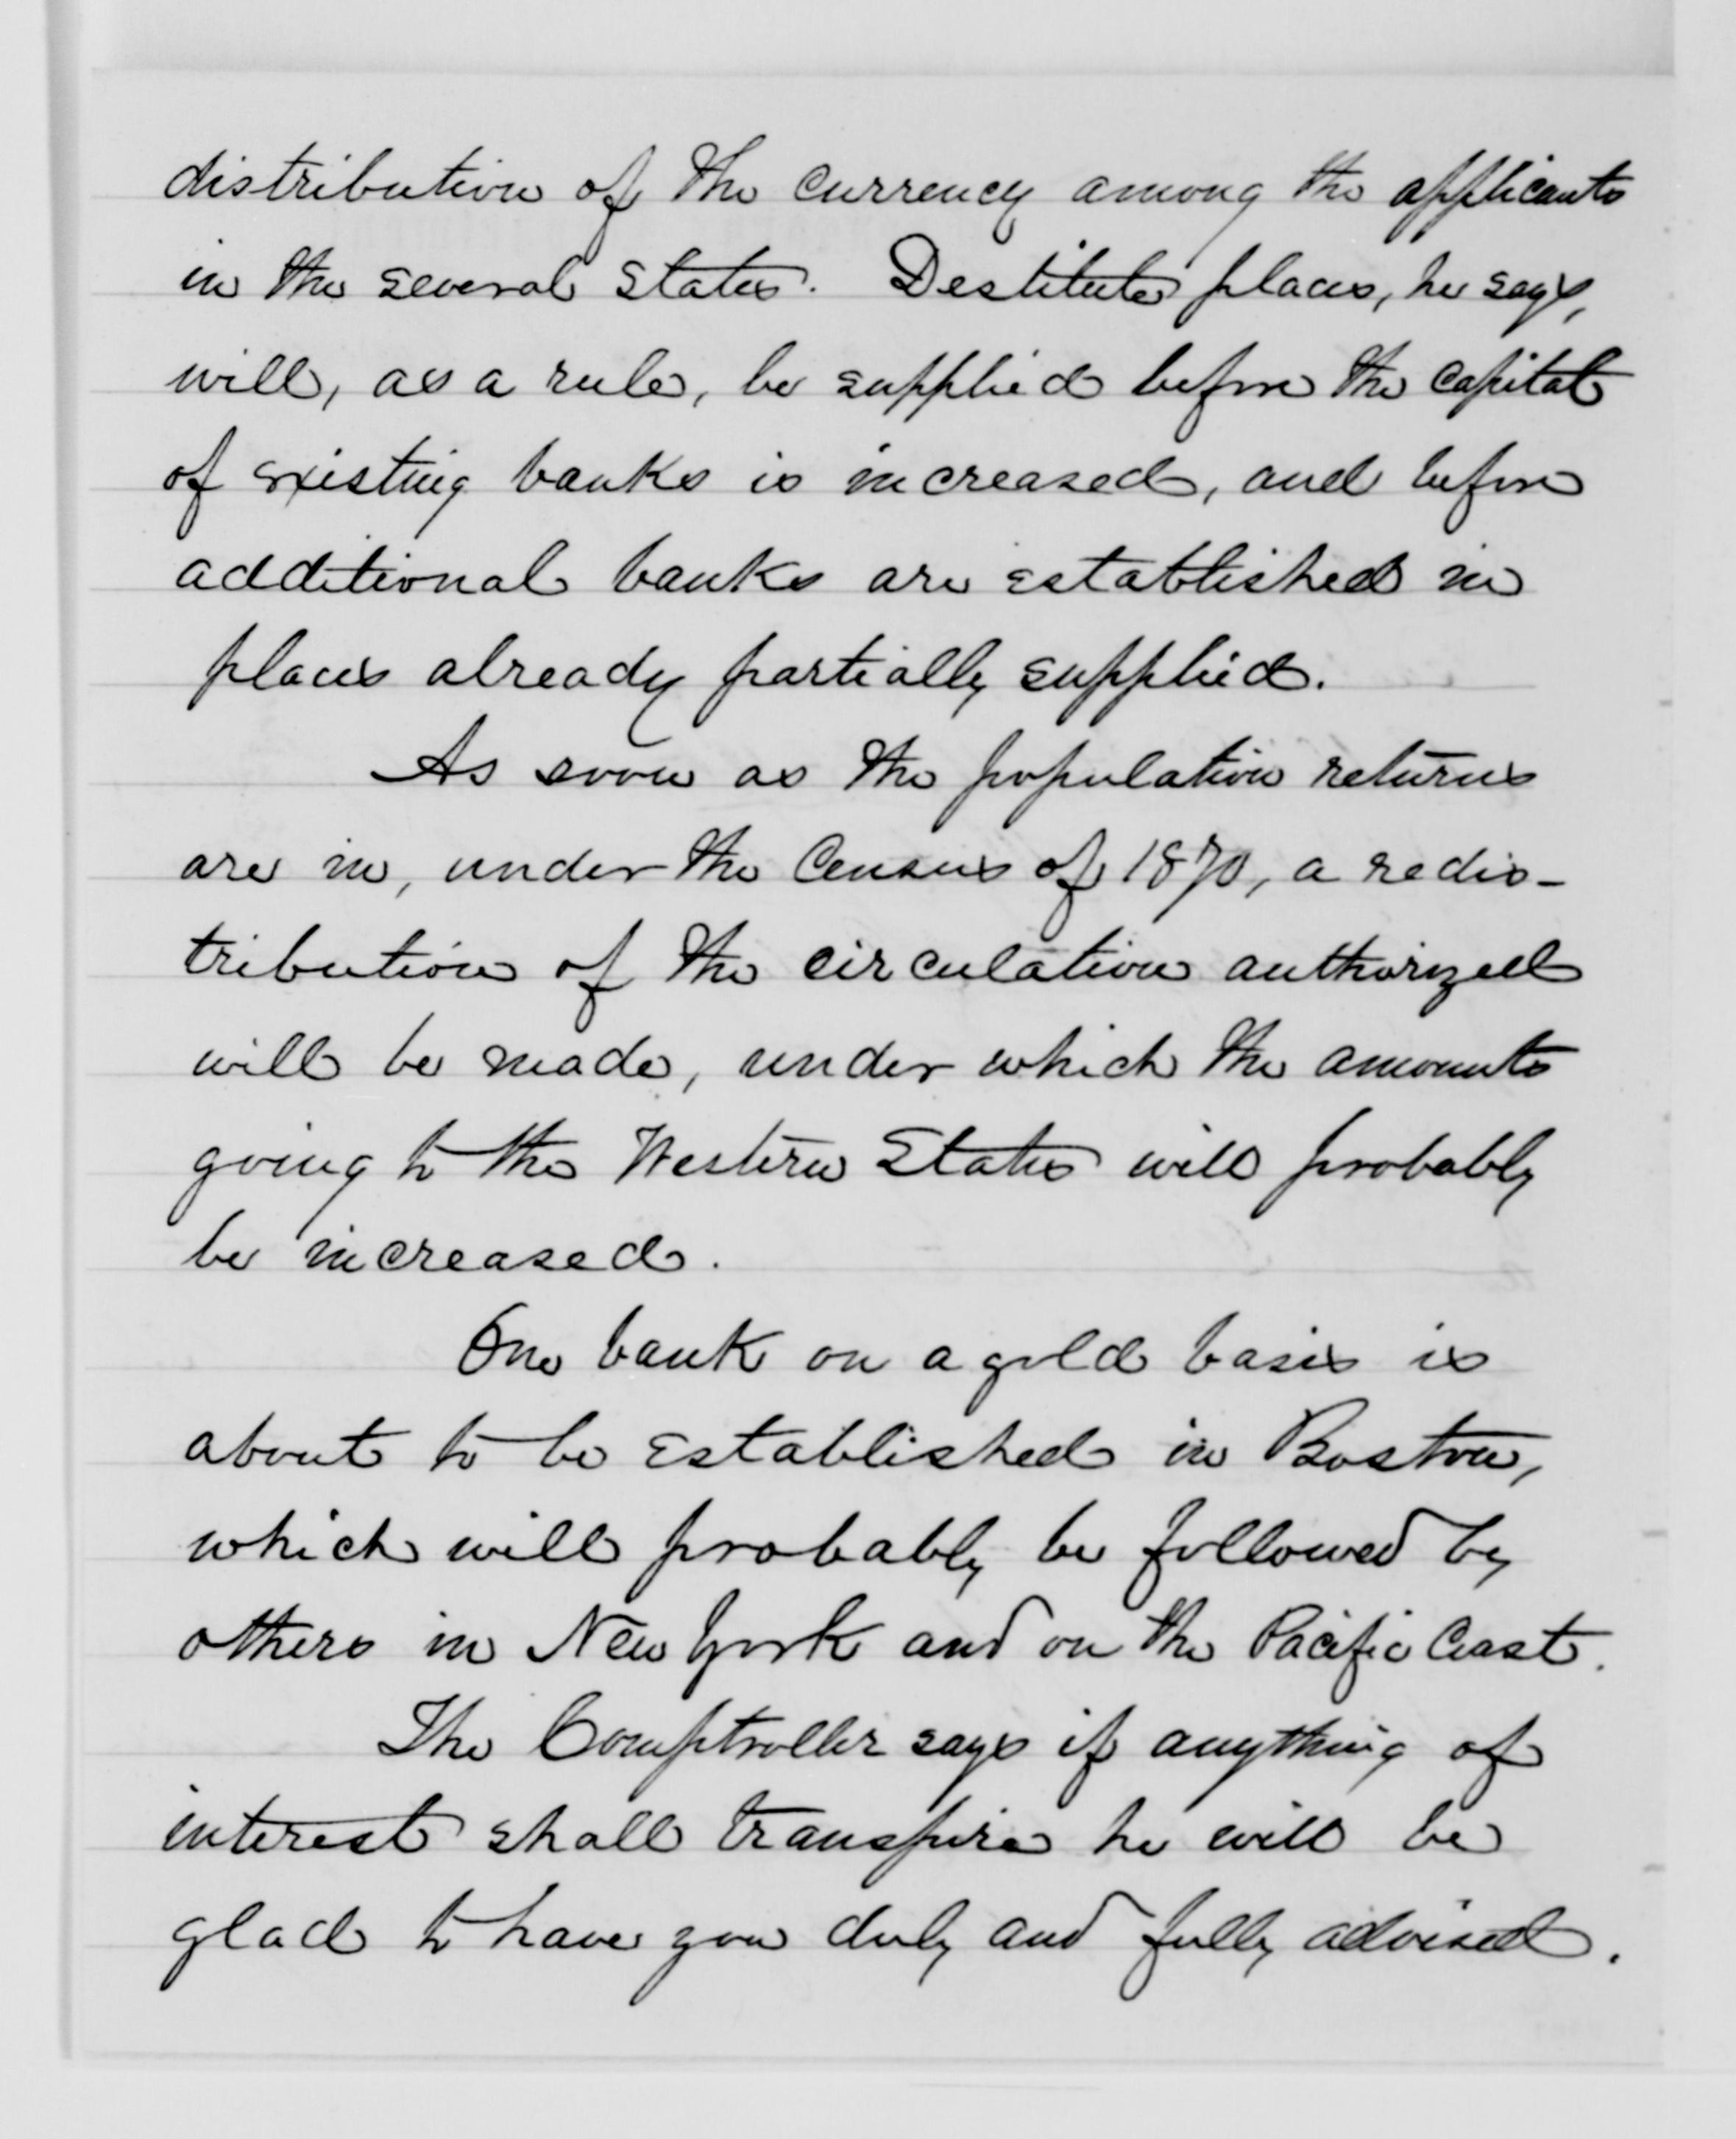 distribution of the currency among the applicants
in the several States. Destitute places, he says,
will, as a rule, be supplied before the capital
of existing banks is increased, and before
additional banks are established in
places already partially supplied.
As soon as the population returns
are in, under the Census of 1870, a redis-
tribution of the circulation authorized
will be made, under which the amounts
going to the Western States will probably
be increased.
One bank on a gold basis is
about to be established in Boston,
which will probably be followed by
others in New York and on the Pacific Coast.
The Comptroller says if anything of
interest shall transpire he will be
glad to have you duly and fully advised.